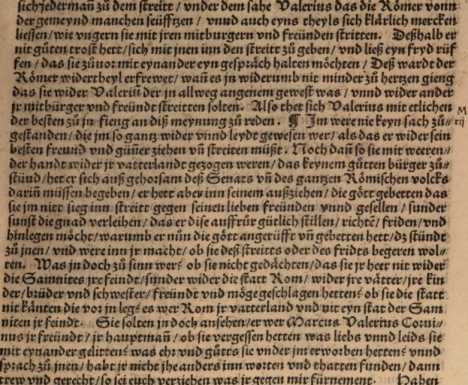 sich jederman̄ zů dem streitt / vnder dem sahe Valerius das die Römer vonn
der gemeynd manchen seüfftzen / vnnd auch eyns theyls sich klärlich mercken
liessen / wie vngern sie mit jren mitburgern vnd freünden stritten. Deßhalb er
nit gůten trost hett / sich mit jnen inn den streitt zů geben / vnd ließ eyn fryd růf
fen / das sie zůuor mit eynander eyn gespräch halten möchten / Deß wardt der
Römer widertheyl erfrewet / wan̄ es jn widerumb nit minder zů hertzen gieng
das sie wider Valeriū der jn allweg angenem gewest was / vnnd wider ander
jr mitbürger vnd freündt streitten solten. Also thet sich Valerius mit etlichen
der besten zů jn fieng an diß meynung zů reden. ¶ Im were nie keyn sach zů
gestanden / die jm so gantz wider vnnd leydt gewesen wer / als das er wider sein
besten freund vnd gün̄er ziehen vn̄ streitten müßt. Noch dan̄ so sie mit weeren /
der handt wider jr vatterlandt gezogen weren / das keynem gůtten bürger zů
stünd / het er sich auß gehorsam deß Senats vn̄ des gantzen Römischen volcks
darin̄ müssen begeben / er hett aber inn seinem außziehen / die gött gebetten das
sie jm nitt sieg inn streitt gegen seinen lieben freünden vnnd gesellen / sunder
sunst die gnad verleihen / das er dise auffrůr gütlich stillen / richtē / friden / vnd
hinlegen möcht / warumb er nůn die gött angerüfft vn̄ gebetten hett / dz stündt
zů jnen / vnd were inn jr macht / ob sie deß streitts oder des frids begeren wol-
ten. Was jn doch zů sinn wer? ob sie nicht gedächten / das sie jr heer nit wider
die Samnites jre feindt / sunder wider die statt Rom / wider jre vätter / jre kin
der / brüder vnd schwester / freündt vnd möge geschlagen hetten? ob sie die statt
nit känten die vor jn leg? es wer Rom jr vatterland vnd nit eyn stat der Sam
niten jr feindt. Sie solten jn doch ansehen / er wer Marcus Valerius Corui-
nus jr freündt / jr hauptman̄ / ob sie vergessen hetten was liebs vnnd leids sie
mit eynander gelitten? was ehr vnd gůtts sie vnder jm erworben hetten? vnnd
sprach zů jnen / habt jr nicht jhe anders inn worten vnd thatten funden / dann
trew vnd gerecht / so sei euch verziehen was jr gegen mir fürnement. Haben
M iij